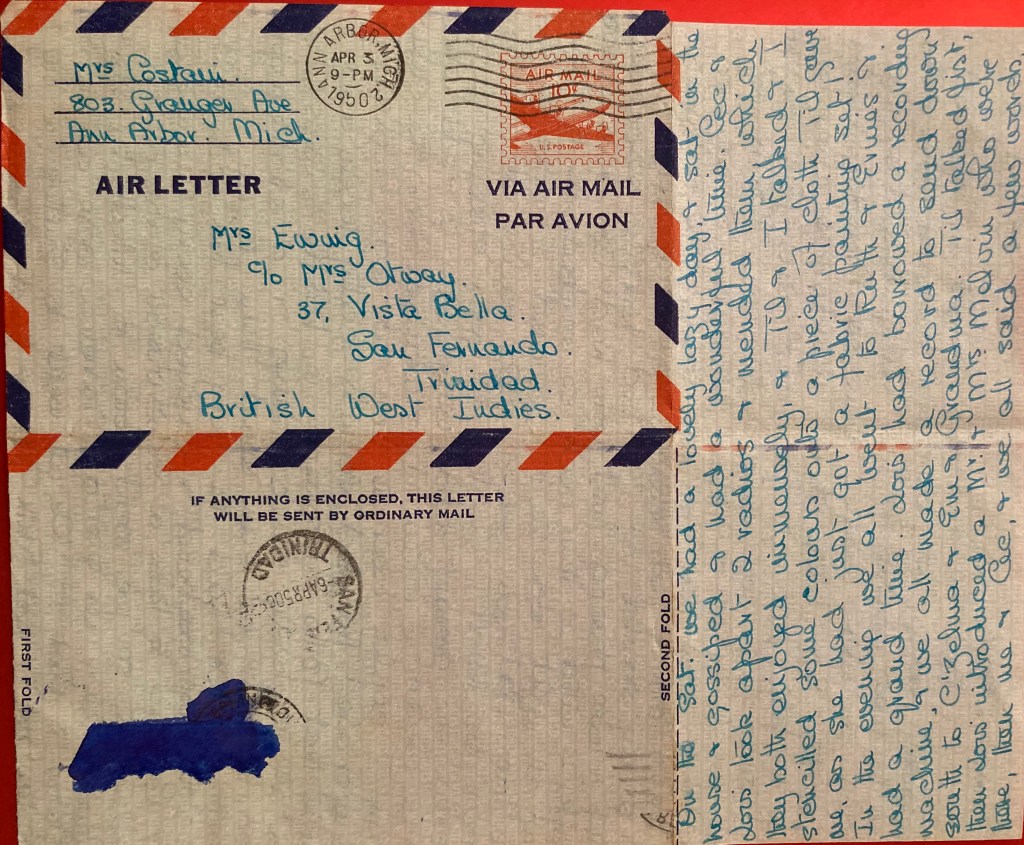 Mrs Costain.
803. Granger Ave
Ann Arbor. Mich.
ANN ARBOR, MICH
APR 3
9-PM
1950
2
AIR MAIL
10¢
U.S. POSTAGE
AIR LETTER
VIA AIR MAIL
PAR AVION
Mrs Ewing.
c/o Mrs Otway.
37, Vista Bella.
San Fernando.
Trinidad.
British West Indies.
IF ANYTHING IS ENCLOSED, THIS LETTER
WILL BE SENT BY ORDINARY MAIL
SAN
TRINIDAD
6 APR 50
FIRST FOLD
SECOND FOLD
On the Sat. we had a lovely lazy day, & sat in the
house & gossiped & had a wonderful time. Cec &
Lois took apart 2 radios & mended them, which
they both enjoyed immensely, & Til & I talked & I
stencilled some colours onto a piece of cloth Til gave
me, as she had just got a fabric painting set!
In the evening we all went to Ruth & Ernies &
had a grand time. Lois had borrowed a recording
machine, & we all made a record to send down
south to C'zelma & Em & Grandma. Til talked first,
then Lois introduced a Mr & Mrs Melvin who were
there, then me & Cec, & we all said a few words,